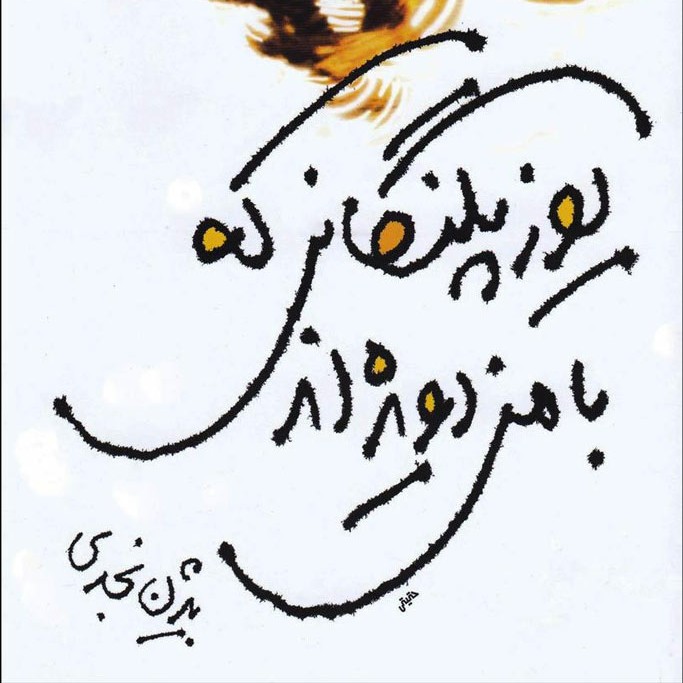 یوزپلنگانی که
با من دویده‌اند
بیژن نجدی
حقیقی